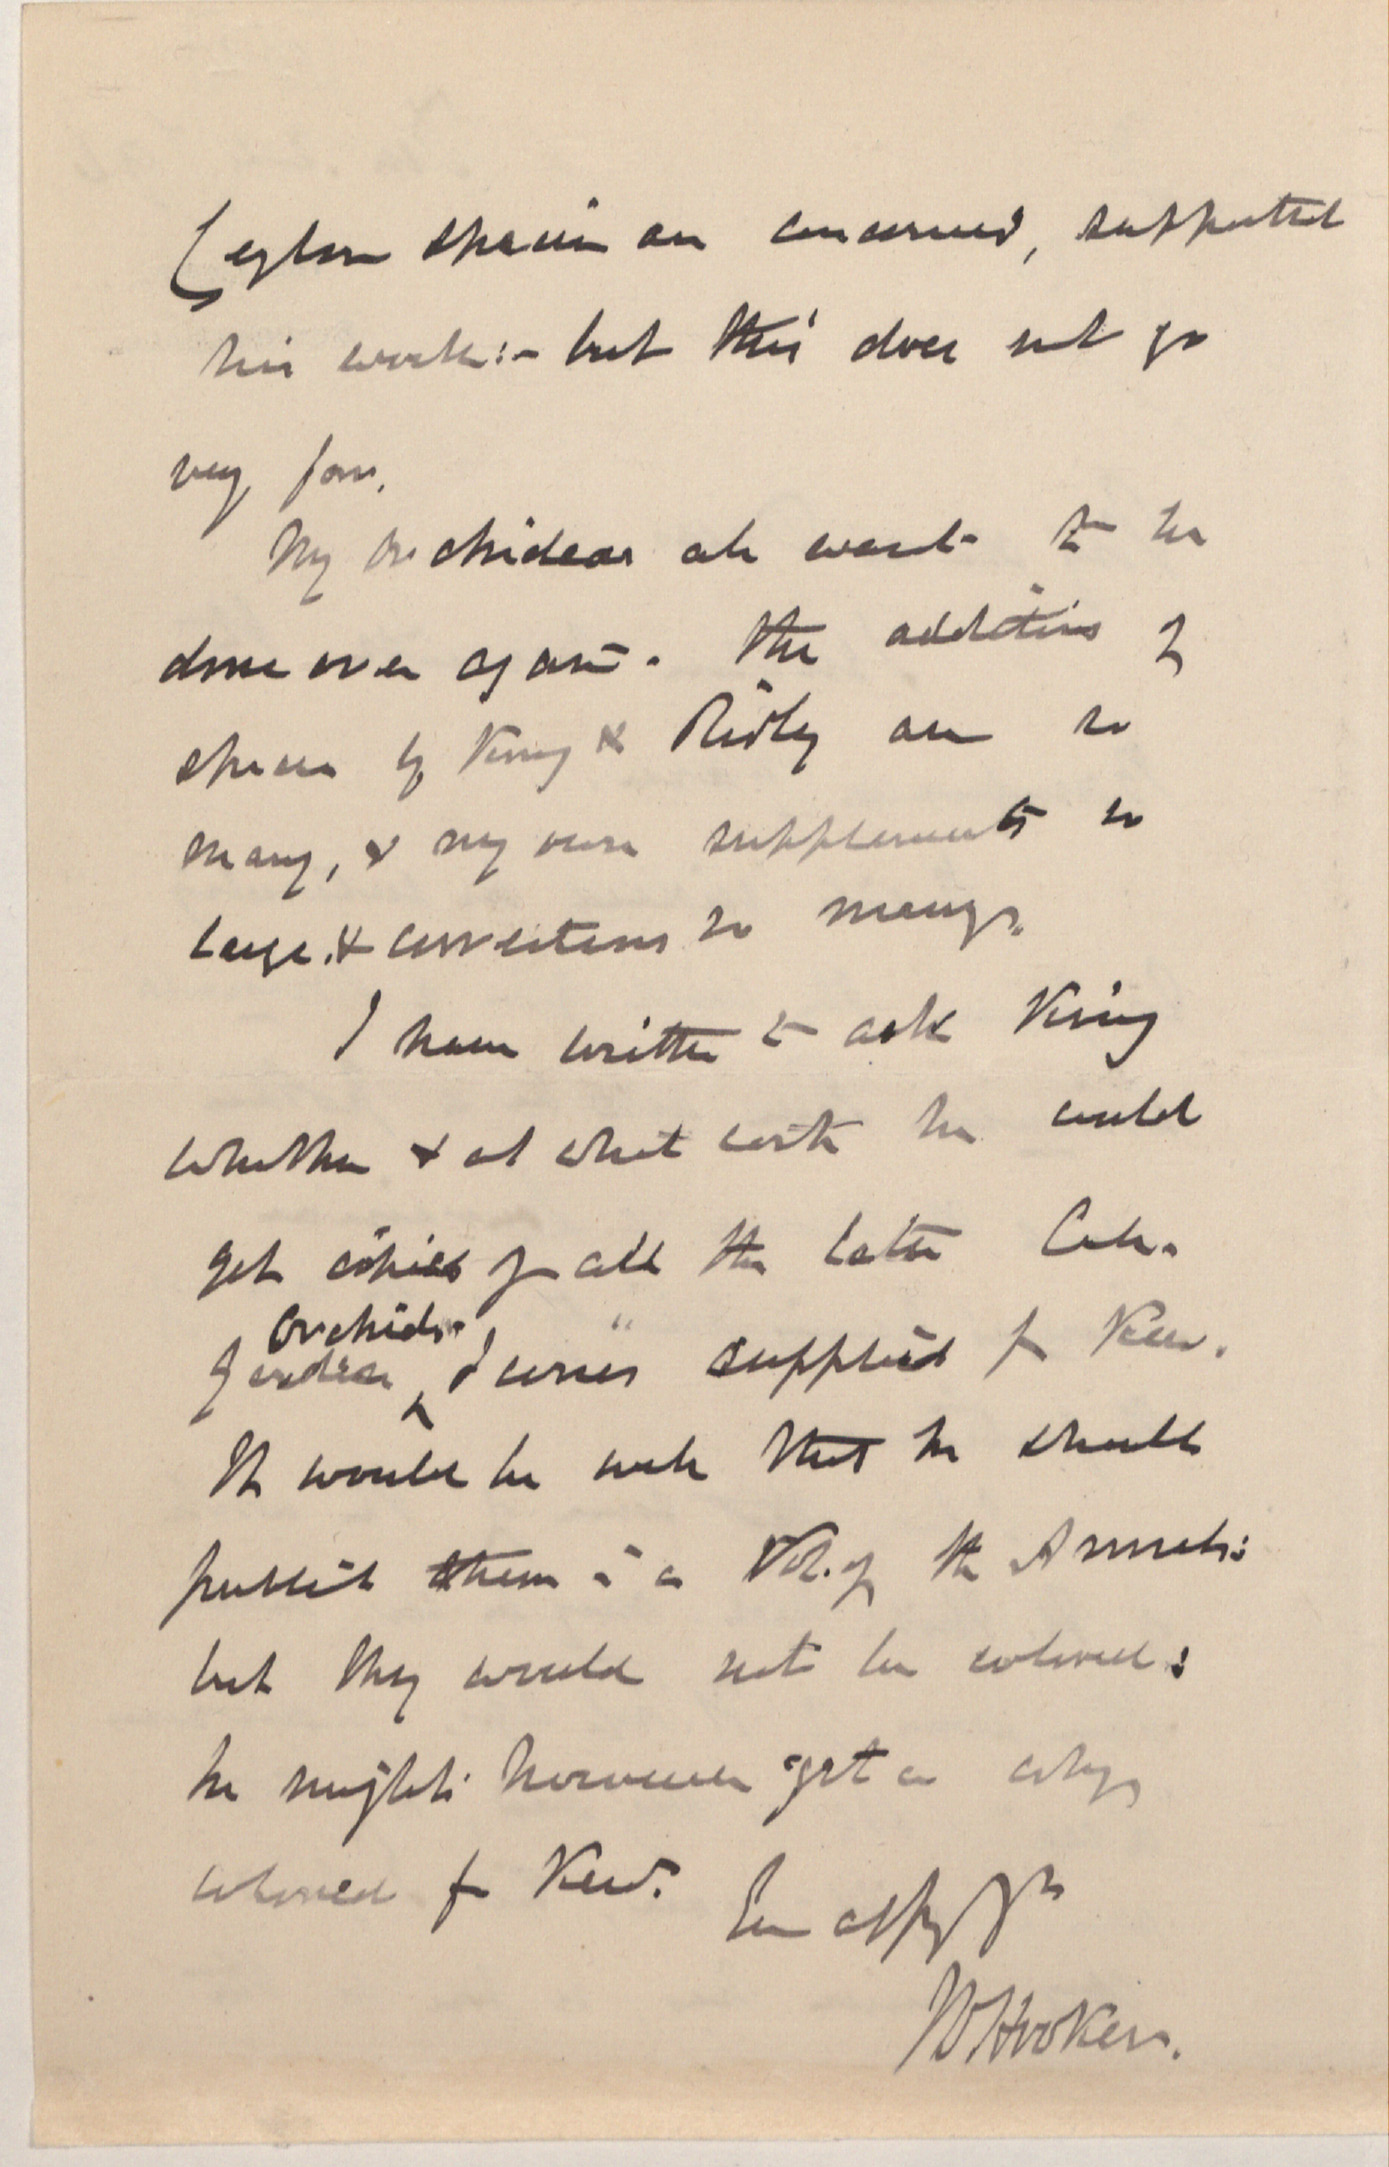 Ceylon species are concerned, supported
his work:- but this does not go
very far.
My Orchideae all want to be
done over again. The additions of
species by King & Ridley are so
many, & my own supplements so
large, & corrections so many.
I have written to ask King
whether & at what cost he could
get copies of all the later Calc.
Orchid
Garden ^ Icones supplied for Kew.
It would be well that he should
publish them in a Vol. of the Annals:
but they would not be colored:
he might however get a copy
colored for Kew.
Ever affy yrs
JD Hooker.